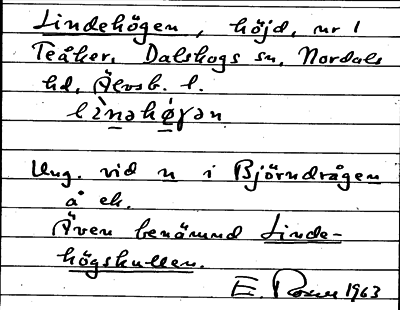 Lindehögen, höjd, nr 1
Teåker, Dalskogs sn, Nordals
hd, Älvsb. l.
lìnəhø̀gən
Ung. vid n i Björndrågen
å ek.
Även benämnd Linde-
högskullen.
E. Rosen 1963